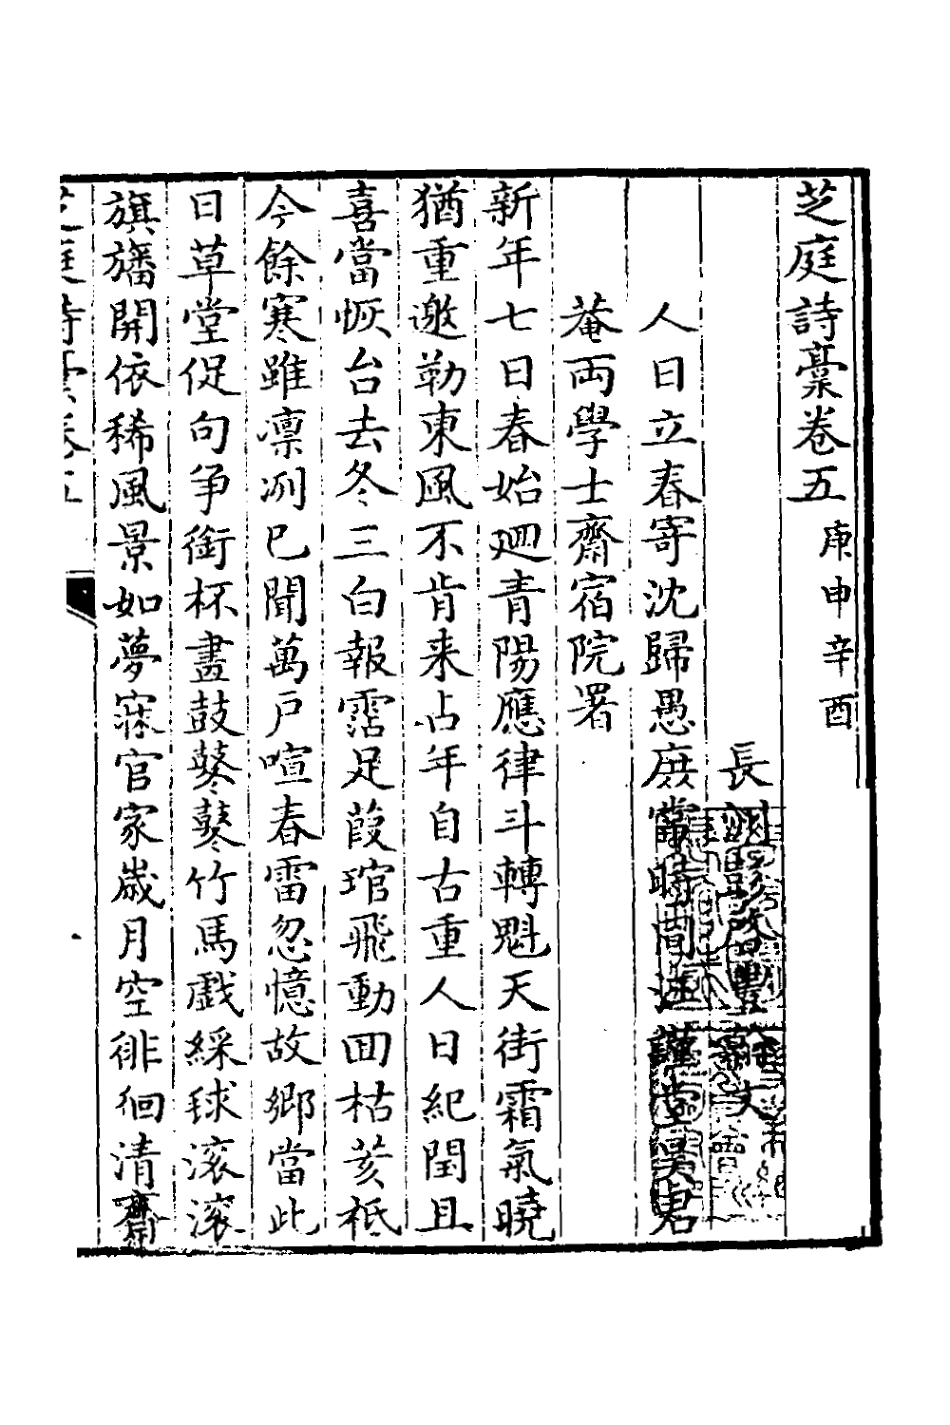 芝庭詩稾卷五 庚申辛酉
長洲彭啓豐翰文
人日立春寄沈歸愚庶常時同述謹堂吳君
菴兩學士齋宿院署
新年七日春始廻青陽應律斗轉魁天街霜氣曉
猶重邀勒東風不肯来占年自古重人日紀閏且
喜當恢台去冬三白報霑足葭琯飛動回枯荄祗
今餘寒雖凛冽已聞萬戶喧春雷忽憶故鄉當此
日草堂促句爭銜杯畫鼓鼕鼕竹馬戲綵毬滚滚
旗旛開依稀風景如夢寐官家歲月空徘徊清齋